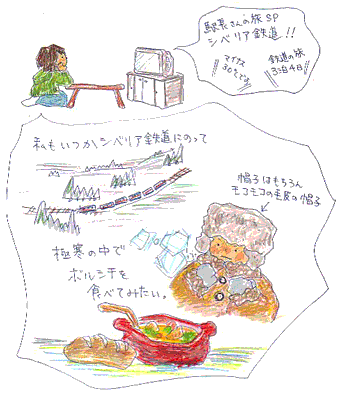 駅長さんの旅SP
シベリア鉄道!!
マイナス
30℃です。
鉄道の旅
3泊4日
私もいつかシベリア鉄道にのって
帽子はもちろん
モコモコの毛皮の帽子
極寒の中で
ボルシチを
食べてみたい。